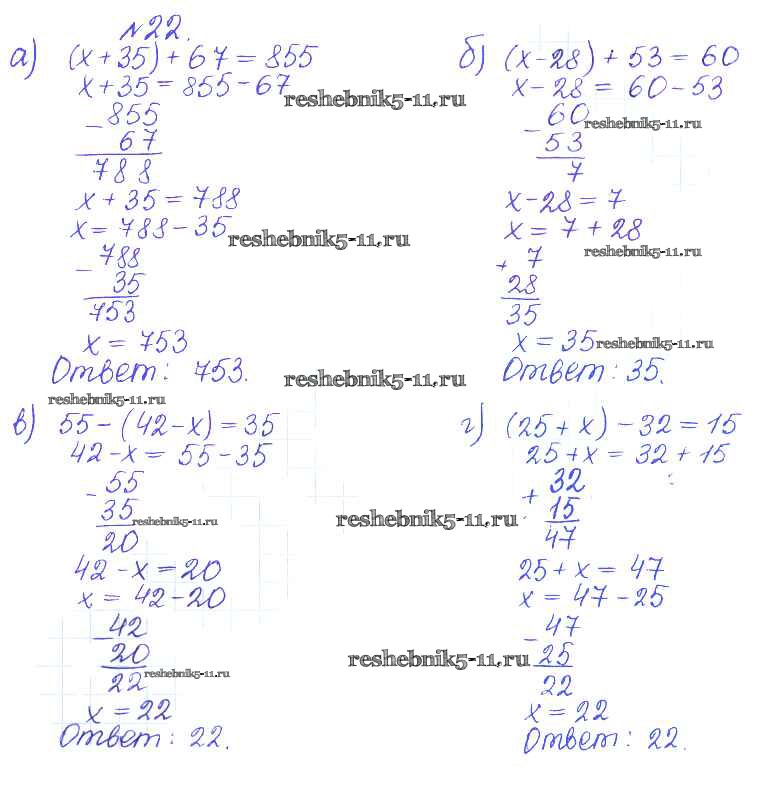 №22.
а) (x+35)+67=855
x+35=855-67
reshebnik5-11.ru
855
- 67
788
x+35=788
x=788-35
reshebnik5-11.ru
788
- 35
753
x=753
Ответ: 753.
reshebnik5-11.ru
б) (x-28)+53=60
x-28=60-53
60
reshebnik5-11.ru
- 53
7
x-28=7
x=7+28
reshebnik5-11.ru
+ 7
28
35
x=35
reshebnik5-11.ru
Ответ: 35.
reshebnik5-11.ru
в) 55-(42-x)=35
42-x=55-35
55
- 35
reshebnik5-11.ru
20
42-x=20
x=42-20
42
- 20
reshebnik5-11.ru
22
x=22
Ответ: 22.
reshebnik5-11.ru
reshebnik5-11.ru
г) (25+x)-32=15
25+x=32+15
32
+ 15
47
25+x=47
x=47-25
47
- 25
22
x=22
Ответ: 22.